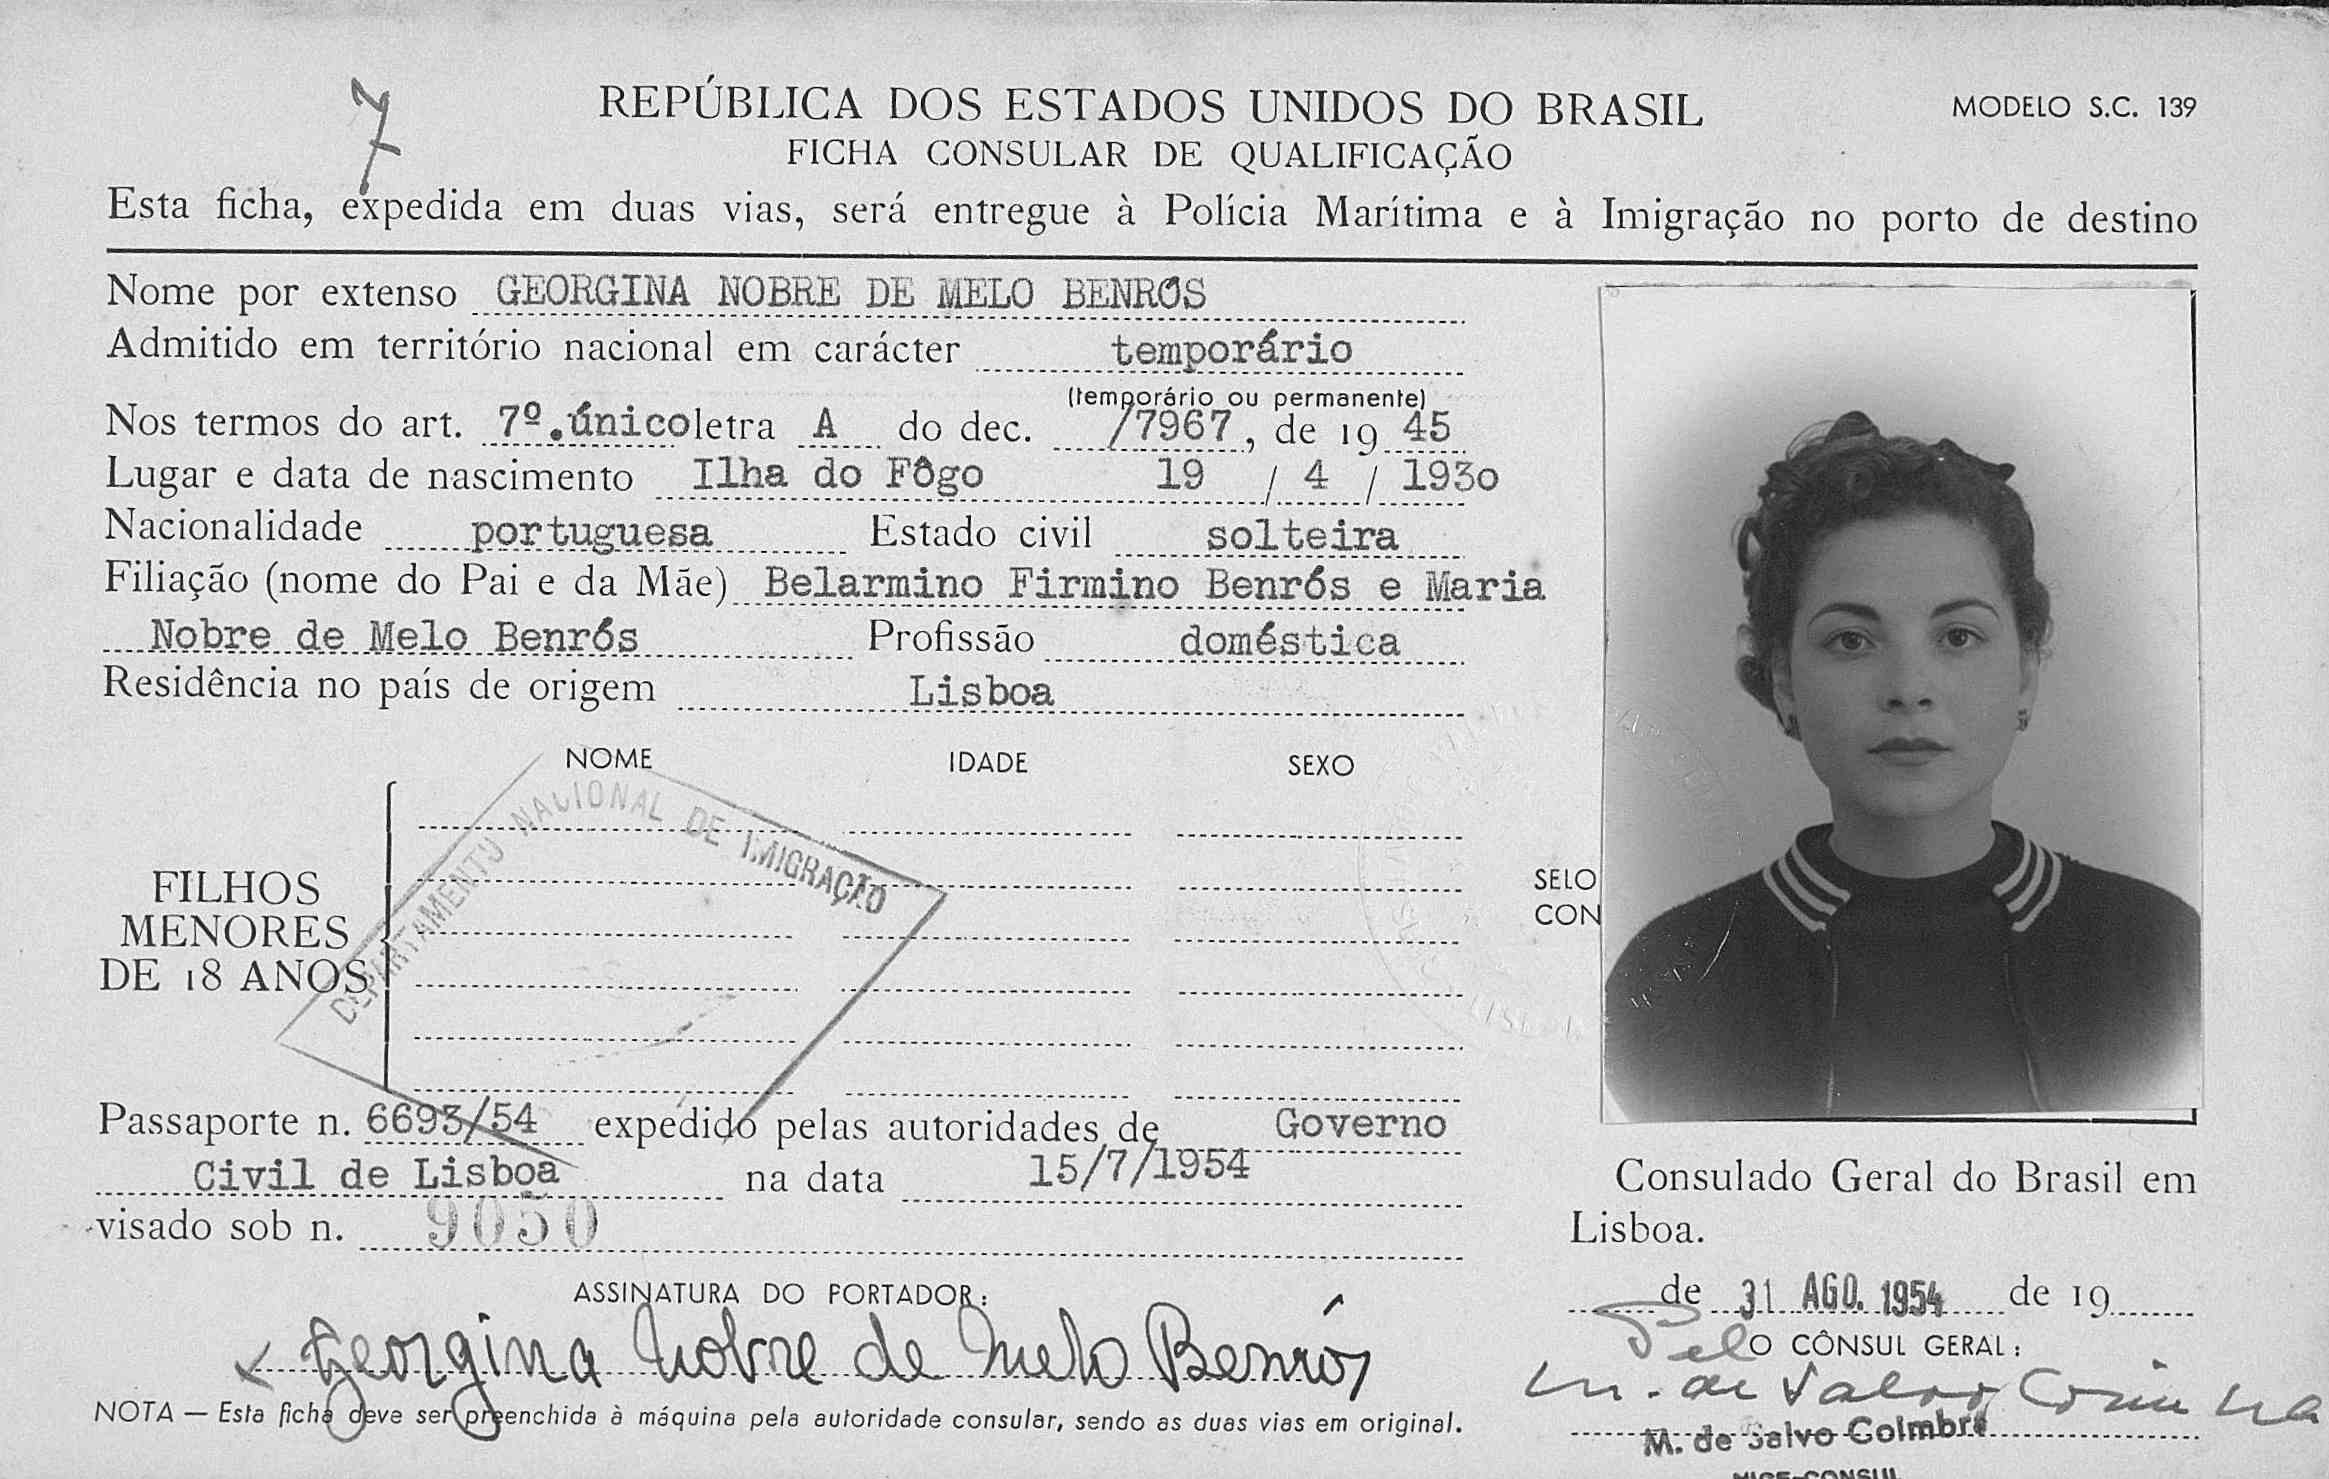 7
REPÚBLICA DOS ESTADOS UNIDOS DO BRASIL
MODELO S.C. 139
FICHA CONSULAR DE QUALIFICAÇÃO
Esta ficha, expedida em duas vias, será entregue à Polícia Marítima e à Imigração no porto de destino
Nome por extenso GEORGINA NOBRE DE MELO BENRÓS
Admitido em território nacional em carácter temporário
(temporário ou permanente)
Nos termos do art. 7º.único letra A do dec. /7967, de 19 45
Lugar e data de nascimento Ilha do Fôgo 19 / 4 / 1930
Nacionalidade portuguesa Estado civil solteira
Filiação (nome do Pai e da Mãe) Belarmino Firmino Benrós e Maria
Nobre de Melo Benrós Profissão doméstica
Residência no país de origem Lisboa
NOME IDADE SEXO
DEPARTAMENTO NACIONAL DE IMIGRAÇÃO
FILHOS
MENORES
DE 18 ANOS
SELO
CON
Passaporte n. 6693/54 expedido pelas autoridades de Governo
Civil de Lisboa na data 15/7/1954
visado sob n. 9050
Consulado Geral do Brasil em
Lisboa.
de 31 AGO. 1954 de 19
ASSINATURA DO PORTADOR:
Georgina Nobre de Melo Benrós
Pelo O CÔNSUL GERAL:
M. de Salvo Coimbra
M. de Salvo Coimbra
VICE-CONSUL
NOTA — Esta ficha deve ser preenchida à máquina pela autoridade consular, sendo as duas vias em original.